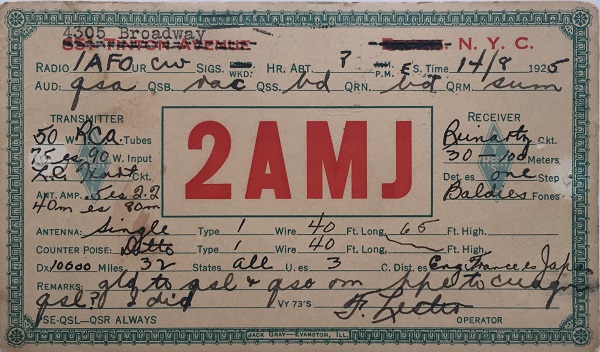 4305 Broadway
881 TINTON AVENUE N. Y. C.
RADIO 1AFO UR CW SIGS. WKD. HR. ABT. ? M. P.M. E S. TIME 14/8 1925
AUD: qsa QSB. rac QSS. bd QRN. bd QRM. sum
TRANSMITTER
50 W. RCA Tubes
75 es 90 W. Input
Ckt.
ANT. AMP. .5 es 2.2
40m es 80m
2AMJ
RECEIVER
Reinartz Ckt.
30 - 100 Meters
Det. es one Step
Baldies Fones
ANTENNA: Single Type 1 Wire 40 Ft. Long, 65 Ft. High.
COUNTER POISE: Ditto Type 1 Wire 40 Ft. Long, Ft. High.
DX 10000 Miles, 32 States all U. es 3 C. Dist. es Eng. France es Jap
REMARKS: gld to qsl & qso om hpe to cuagn
qsl? I did VY 73'S F.
PSE-QSL—QSR ALWAYS OPERATOR
JACK GRAY—EVANSTON, ILL.